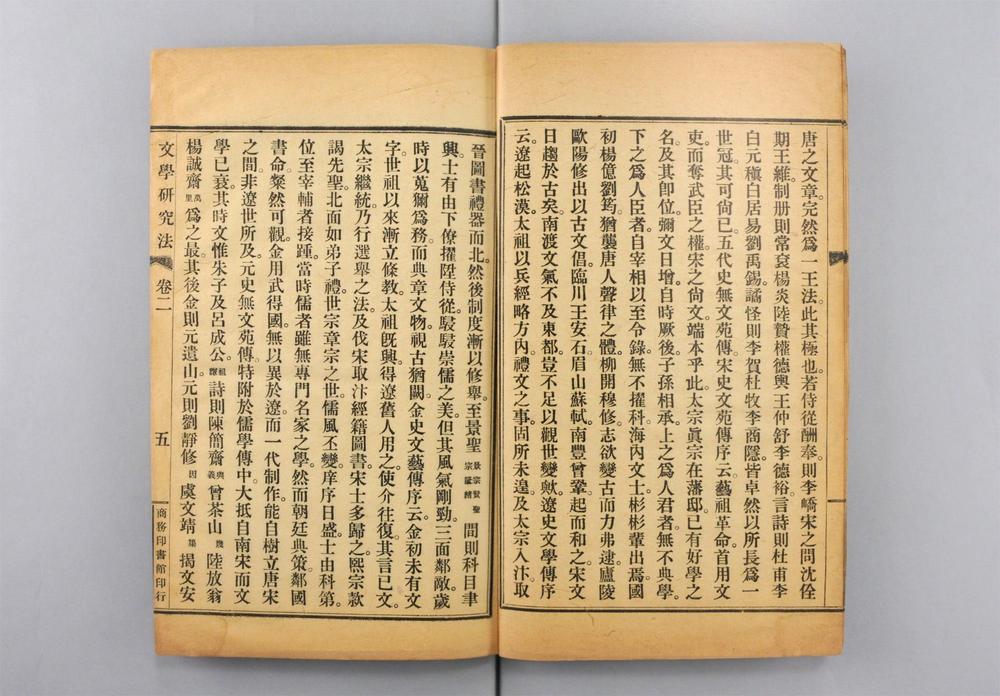 唐之文章完然爲一王法。此其極也。若侍從酬奉。則李嶠宋之問沈佺
期王維。制册則常袞楊炎陸贄權德輿王仲舒李德裕。言詩則杜甫李
白元稹白居易劉禹錫。譎怪則李賀杜牧李商隱。皆卓然以所長爲一
世冠。其可尚已。五代史無文苑傳。宋史文苑傳序云。藝祖革命。首用文
吏而奪武臣之權。宋之尚文。端本乎此。太宗眞宗在藩邸。已有好學之
名。及其卽位。彌文日增。自時厥後。子孫相承。上之爲人君者。無不典學。
下之爲人臣者。自宰相以至令錄。無不擢科。海內文士。彬彬輩出焉。國
初楊億劉筠。猶襲唐人聲律之體。柳開穆修。志欲變古而力弗逮。廬陵
歐陽修出。以古文倡。臨川王安石。眉山蘇軾。南豐曾鞏。起而和之。宋文
日趨於古矣。南渡文氣不及東都。豈不足以觀世變歟。遼史文學傳序
云。遼起松漠。太祖以兵經略方內。禮文之事。固所未遑。及太宗入汴。取
晉圖書禮器而北。然後制度漸以修舉。至景聖景宗賢聖宗隆緒間。則科目聿
興。士有由下僚擢陞侍從。駸駸崇儒之美。但其風氣剛勁。三面鄰敵。歲
時以蒐獮爲務。而典章文物。視古猶闕。金史文藝傳序云。金初未有文
字。世祖以來。漸立條敎。太祖旣興。得遼舊人用之。使介往復。其言已文。
太宗繼統。乃行選舉之法。及伐宋取汴經籍圖書。宋士多歸之。熙宗款
謁先聖。北面如弟子禮。世宗章宗之世。儒風丕變。庠序日盛。士由科第。
位至宰輔者接踵。當時儒者雖無專門名家之學。然而朝廷典策。鄰國
書命。粲然可觀。金用武得國。無以異於遼。而一代制作。能自樹立唐宋
之間。非遼世所及。元史無文苑傳。特附於儒學傳中。大抵自南宋而文
學已衰。其時文惟朱子及呂成公祖謙。詩則陳簡齋與義曾茶山幾陸放翁
楊誠齋萬里爲之最。其後金則元遺山。元則劉靜修因虞文靖集揭文安
文學研究法 卷二 五 商務印書館印行